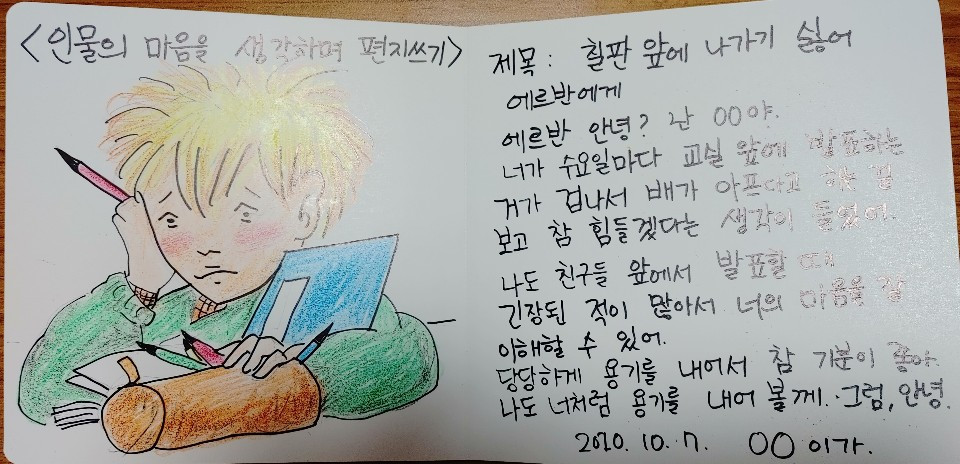 <인물의 마음을 생각하며 편지쓰기>
제목: 칠판 앞에 나가기 싫어
에르반에게
에르반 안녕? 난 OO야.
너가 수요일마다 교실 앞에 발표하는
거가 겁나서 배가 아프다고 하는 걸
보고 참 힘들겠다는 생각이 들었어.
나도 친구들 앞에서 발표할 때
긴장된 적이 많아서 너의 마음을 잘
이해할 수 있어.
당당하게 용기를 내어서 참 기분이 좋아.
나도 너처럼 용기를 내어 볼께. 그럼, 안녕.
2020. 10. 7. OO이가.